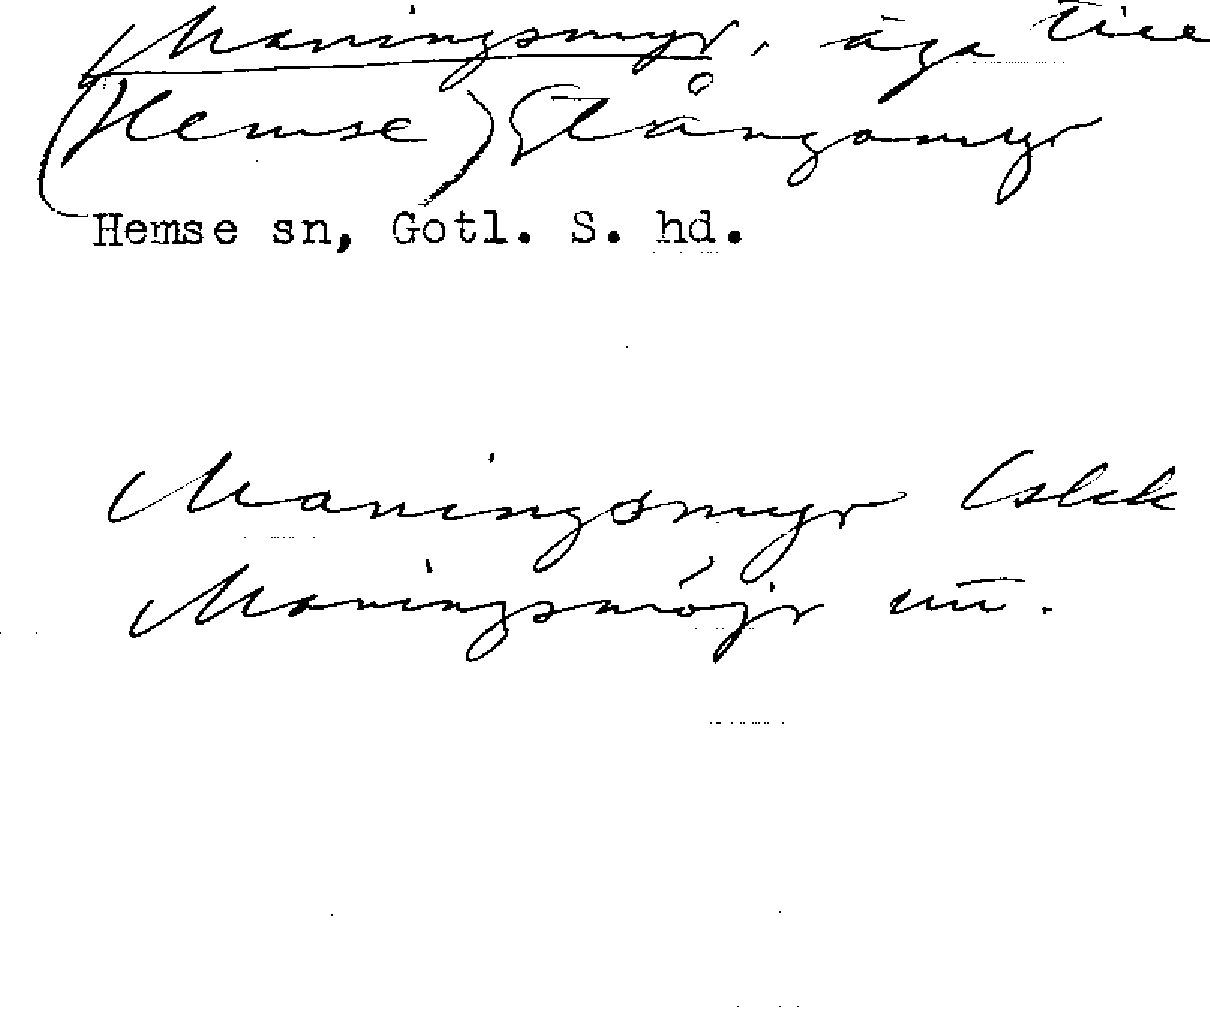 Maningsmyr, äga till
(Hemse) Stångamyr
Hemse sn, Gotl. S. hd.
Maningsmyr Cslek
Maningsmöjr un.